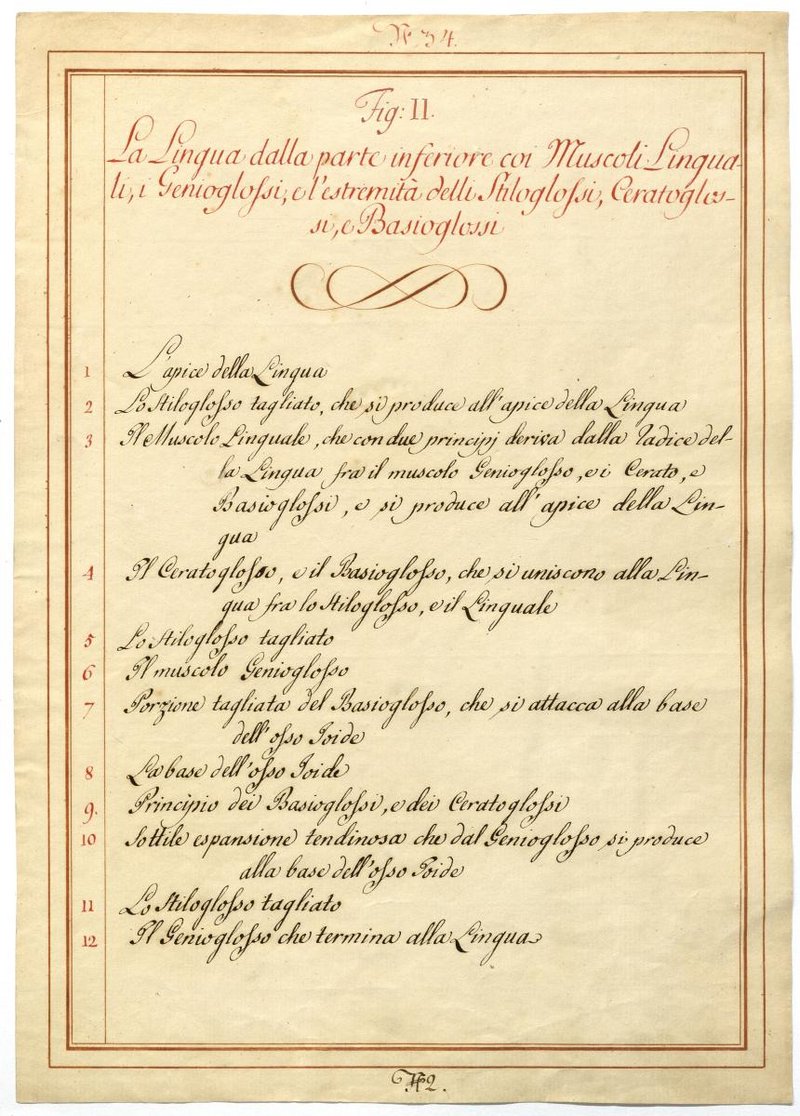 N.º 34.
Fig: II.
La Lingua dalla parte inferiore coi Muscoli Lingua-
li, i Genioglossi, e l'estremità delli Stiloglossi, Ceratoglos-
si, e Basioglossi
1 L'apice della Lingua
2 Lo Stiloglosso tagliato, che si produce all'apice della Lingua
3 Il Muscolo Linguale, che con due principj deriva dalla Radice del-
la Lingua fra il muscolo Genioglosso, e i Cerato, e
Basioglossi, e si produce all'apice della Lin-
gua
4 Il Ceratoglosso, e il Basioglosso, che si uniscono alla Lin-
gua fra lo Stiloglosso, e il Linguale
5 Lo Stiloglosso tagliato
6 Il muscolo Genioglosso
7 Porzione tagliata del Basioglosso, che si attacca alla base
dell'osso Ioide
8 La base dell'osso Ioide
9. Principio dei Basioglossi, e dei Ceratoglossi
10 Sottile espansione tendinosa che dal Genioglosso si produce
alla base dell'osso Ioide
11 Lo Stiloglosso tagliato
12 Il Genioglosso che termina alla Lingua